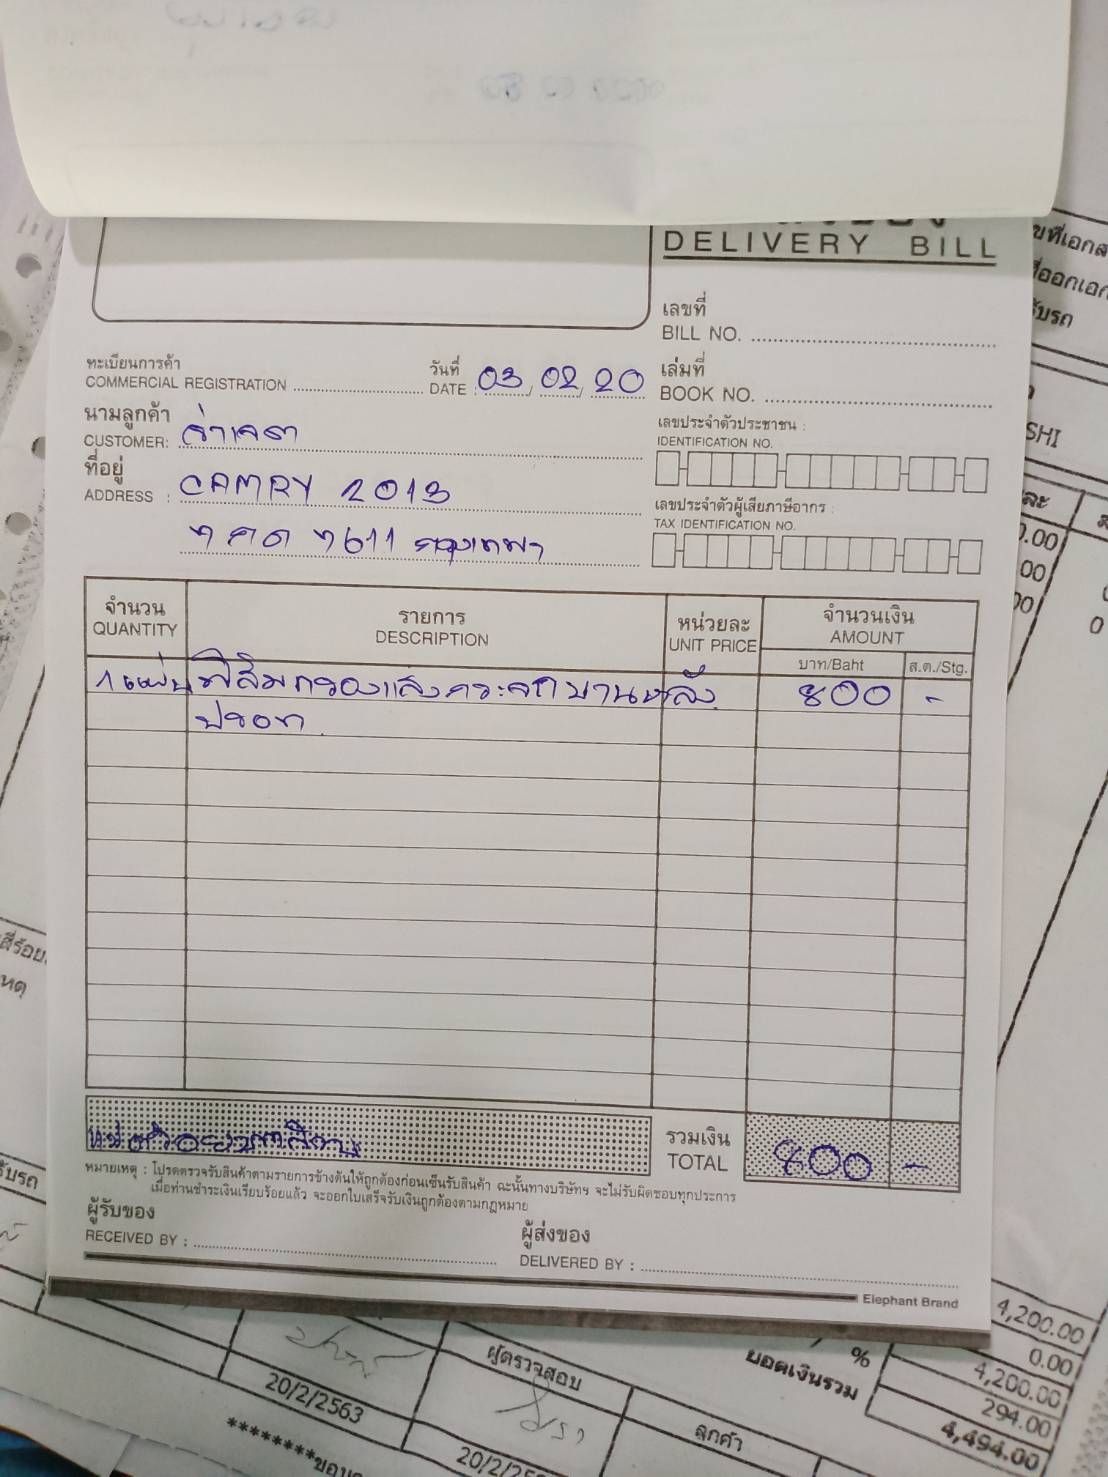 DELIVERY BILL
เลขที่
BILL NO.
ทะเบียนการค้า
COMMERCIAL REGISTRATION
วันที่
DATE 03, 02, 20
เล่มที่
BOOK NO.
นามลูกค้า
CUSTOMER:
เลขประจำตัวประชาชน :
IDENTIFICATION NO.
ที่อยู่
ADDRESS : CAMRY 2013
เลขประจำตัวผู้เสียภาษีอากร :
TAX IDENTIFICATION NO.
7611 กรุงเทพฯ
จำนวน
QUANTITY
รายการ
DESCRIPTION
หน่วยละ
UNIT PRICE
จำนวนเงิน
AMOUNT
บาท/Baht
ส.ต./Stg.
1 แผ่น ฟิล์มกรองแสงกระจกบานหลัง 800 -
ปรอท
รวมเงิน
TOTAL 800 -
หมายเหตุ : โปรดตรวจรับสินค้าตามรายการข้างต้นให้ถูกต้องก่อนเซ็นรับสินค้า ฉะนั้นทางบริษัทฯ จะไม่รับผิดชอบทุกประการ
เมื่อท่านชำระเงินเรียบร้อยแล้ว จะออกใบเสร็จรับเงินถูกต้องตามกฎหมาย
ผู้รับของ
RECEIVED BY :
ผู้ส่งของ
DELIVERED BY :
Elephant Brand
SHI
4,200.00
0.00
%
4,200.00
ยอดเงินรวม
294.00
4,494.00
ผู้ตรวจสอบ
ลูกค้า
20/2/2563